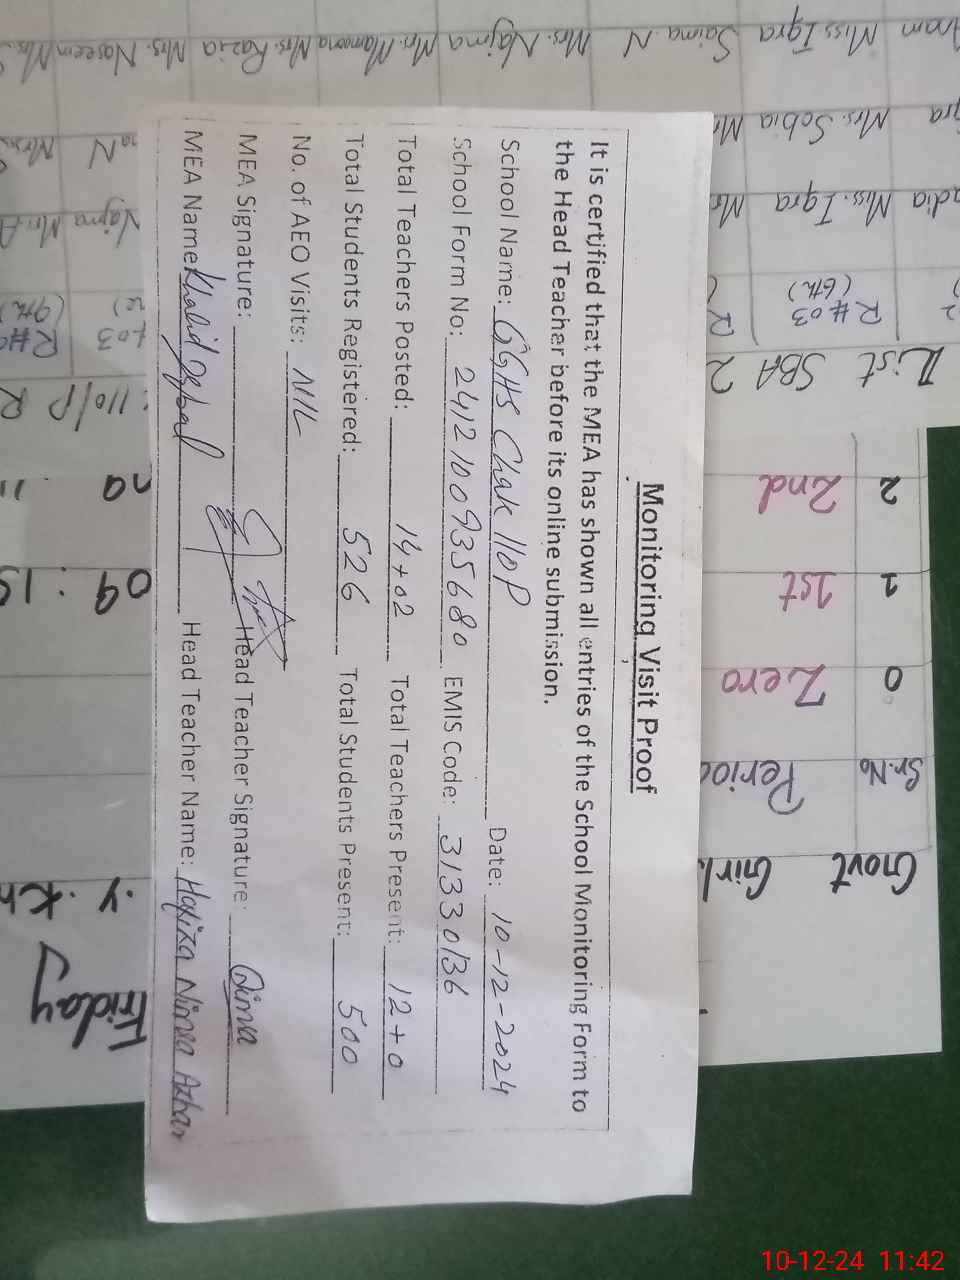 Monitoring Visit Proof
It is certified that the MEA has shown all entries of the School Monitoring Form to
the Head Teacher before its online submission.
School Name: GGHS Chak 110P Date: 10-12-2024
School Form No: 2412100935680 EMIS Code: 31330136
Total Teachers Posted: 14+02 Total Teachers Present: 12+0
Total Students Registered: 526 Total Students Present: 500
No. of AEO Visits: NIL
MEA Signature: Head Teacher Signature: Nimra
MEA Name: Khalid Iqbal Head Teacher Name: Hafiza Nimra Azhar
Govt Girl
Sr.No Period
0 Zero
1 1st
2 2nd
Friday
09:15
List SBA 2
R#03
(6th)
R#0
(9th)
110/P R
Miss.Iqra
Mrs.Sobia
Miss.Iqra Saima.N Mrs.Najma Mrs.Mamoona Mrs.Razia Mrs.Naseem
10-12-24 11:42